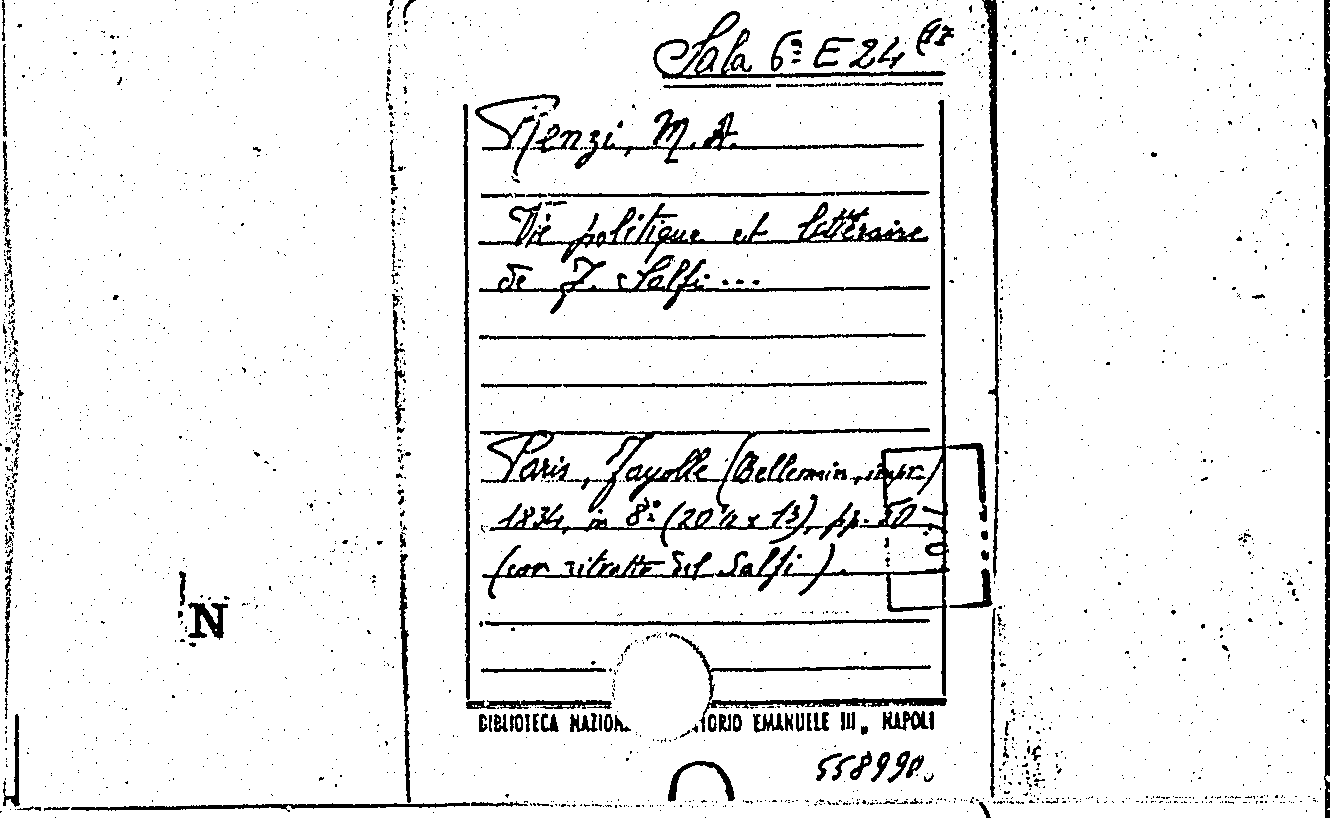 Sala 6ª E 24 (17
Renzi, M. A.
Vie politique et littéraire
de F. Salfi ...
Paris, Fayolle (Bellemin, impr.)
1834, in 8º (20½ x 13), pp. 50
(con ritratto del Salfi).
N
BIBLIOTECA NAZION TORIO EMANUELE III, NAPOLI
558990.